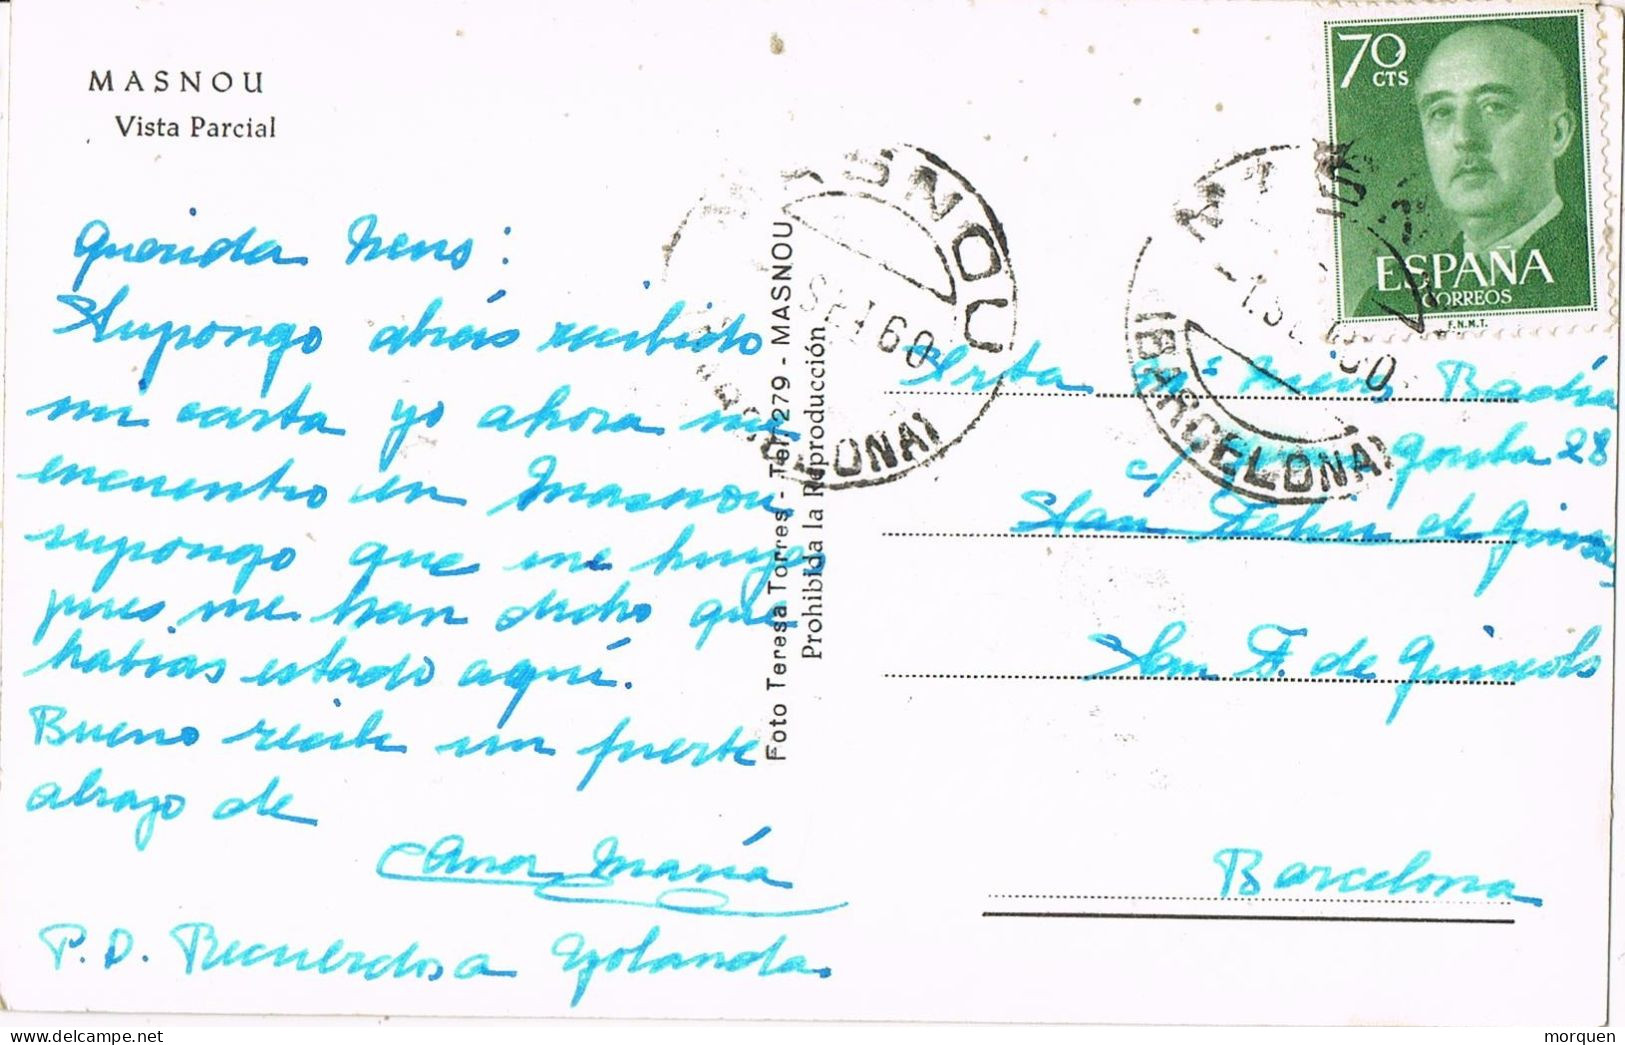 MASNOU
Vista Parcial
Querida Neus:
Supongo abrás recibido
mi carta yo ahora me
encuentro en Masnou
supongo que me
pues me han dicho que
habias estado aquí.
Bueno recibe un fuerte
abrazo de
Ana María
P.D. Recuerdos a Yolanda.
Foto Teresa Torres - Telf. 279 - MASNOU
Prohibida la Reproducción
MASNOU
SET 60
(BARCELONA)
MASNOU
-1. SET 60
(BARCELONA)
70 CTS
ESPAÑA
CORREOS
F.N.M.T.
Srta Mª Nieves Badía
c/ 28
San Feliu de
San F. de Guixols
Barcelona
morquen